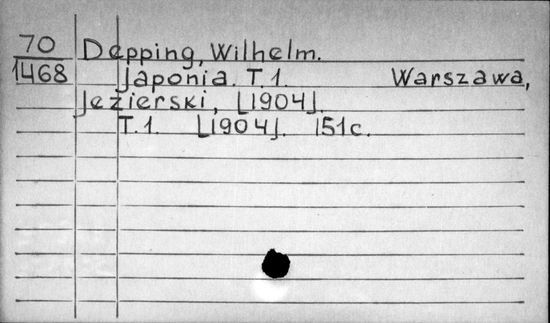 70 Depping, Wilhelm.
1468 Japonia. T.1. Warszawa,
Jezierski, [1904].
T.1. [1904]. 151c.